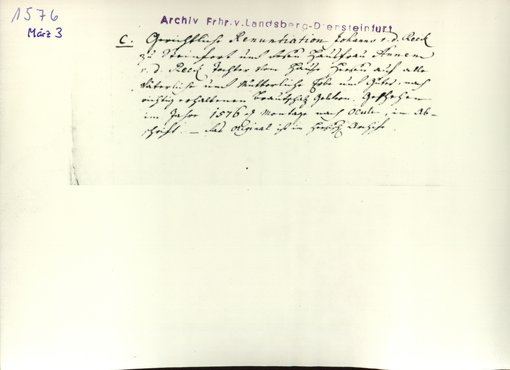 1576
März 3
Archiv Frhr.v.Landsberg-Drensteinfurt
C. Gerichtliche Renuntiation Johanns v. d. Reck
zu Steinfort und dessen Hausfrau Annen
v. d. Reck, Tochter vom Hause Heesen auf alle
Väterliche und Mütterliche Erbe und Güter, nach
richtig erhaltenen Brautschatz Geldern. Geschehen
im Jahr 1576 Montags nach Oculi, in Ab-
schrift. — das Original ist im Archiv.